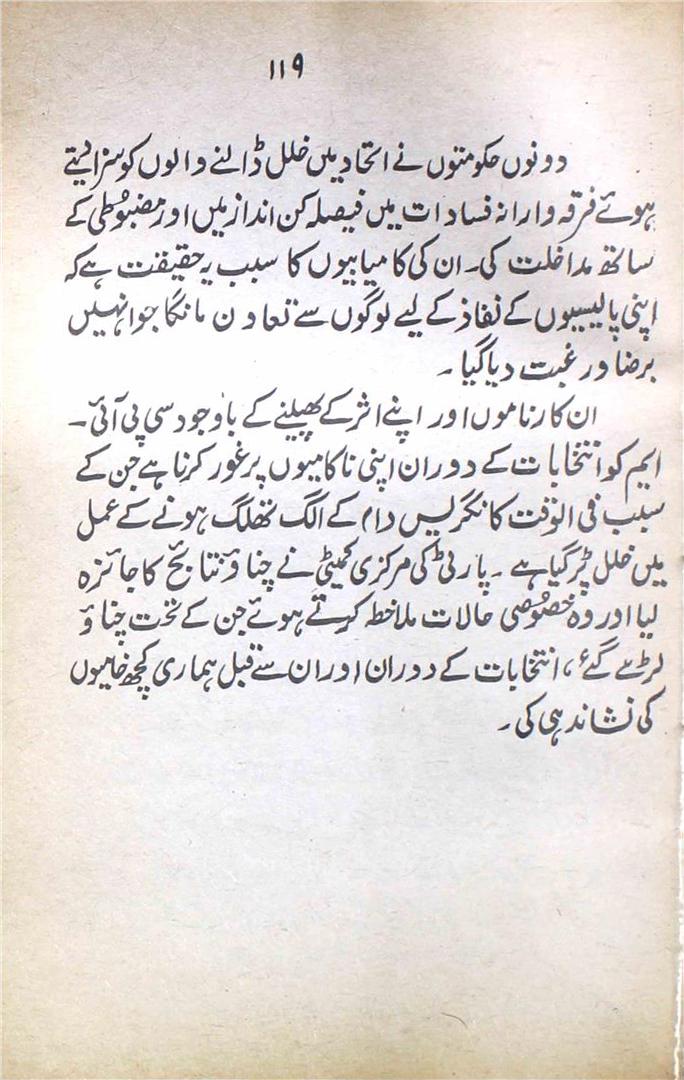 ۱۱۹
دونوں حکومتوں نے اتحاد میں خلل ڈالنے والوں کو سزا دیتے
ہوئے فرقہ وارانہ فسادات میں فیصلہ کن انداز میں اور مضبوطی کے
ساتھ مداخلت کی۔ ان کی کامیابیوں کا سبب یہ حقیقت ہے کہ
اپنی پالیسیوں کے نفاذ کے لیے لوگوں سے تعاون مانگا جو انہیں
برضا ورغبت دیا گیا۔
ان کارناموں اور اپنے اثر کے پھیلنے کے باوجود سی پی آئی۔
ایم کو انتخابات کے دوران اپنی ناکامیوں پر غور کرنا ہے جن کے
سبب فی الوقت کانگریس دام کے الگ تھلگ ہونے کے عمل
میں خلل پڑ گیا ہے۔ پارٹی کی مرکزی کمیٹی نے چناؤ نتائج کا جائزہ
لیا اور وہ خصوصی حالات ملاخطہ کرتے ہوئے جن کے تحت چناؤ
لڑے گئے، انتخابات کے دوران اور ان سے قبل ہماری کچھ خامیوں
کی نشاندہی کی۔